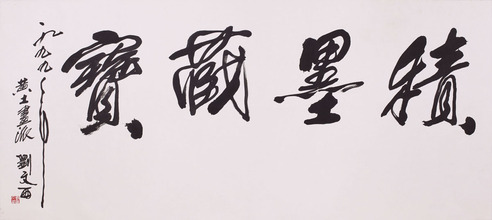 積墨藏寶
一九九九年
黄土畫派
劉文西